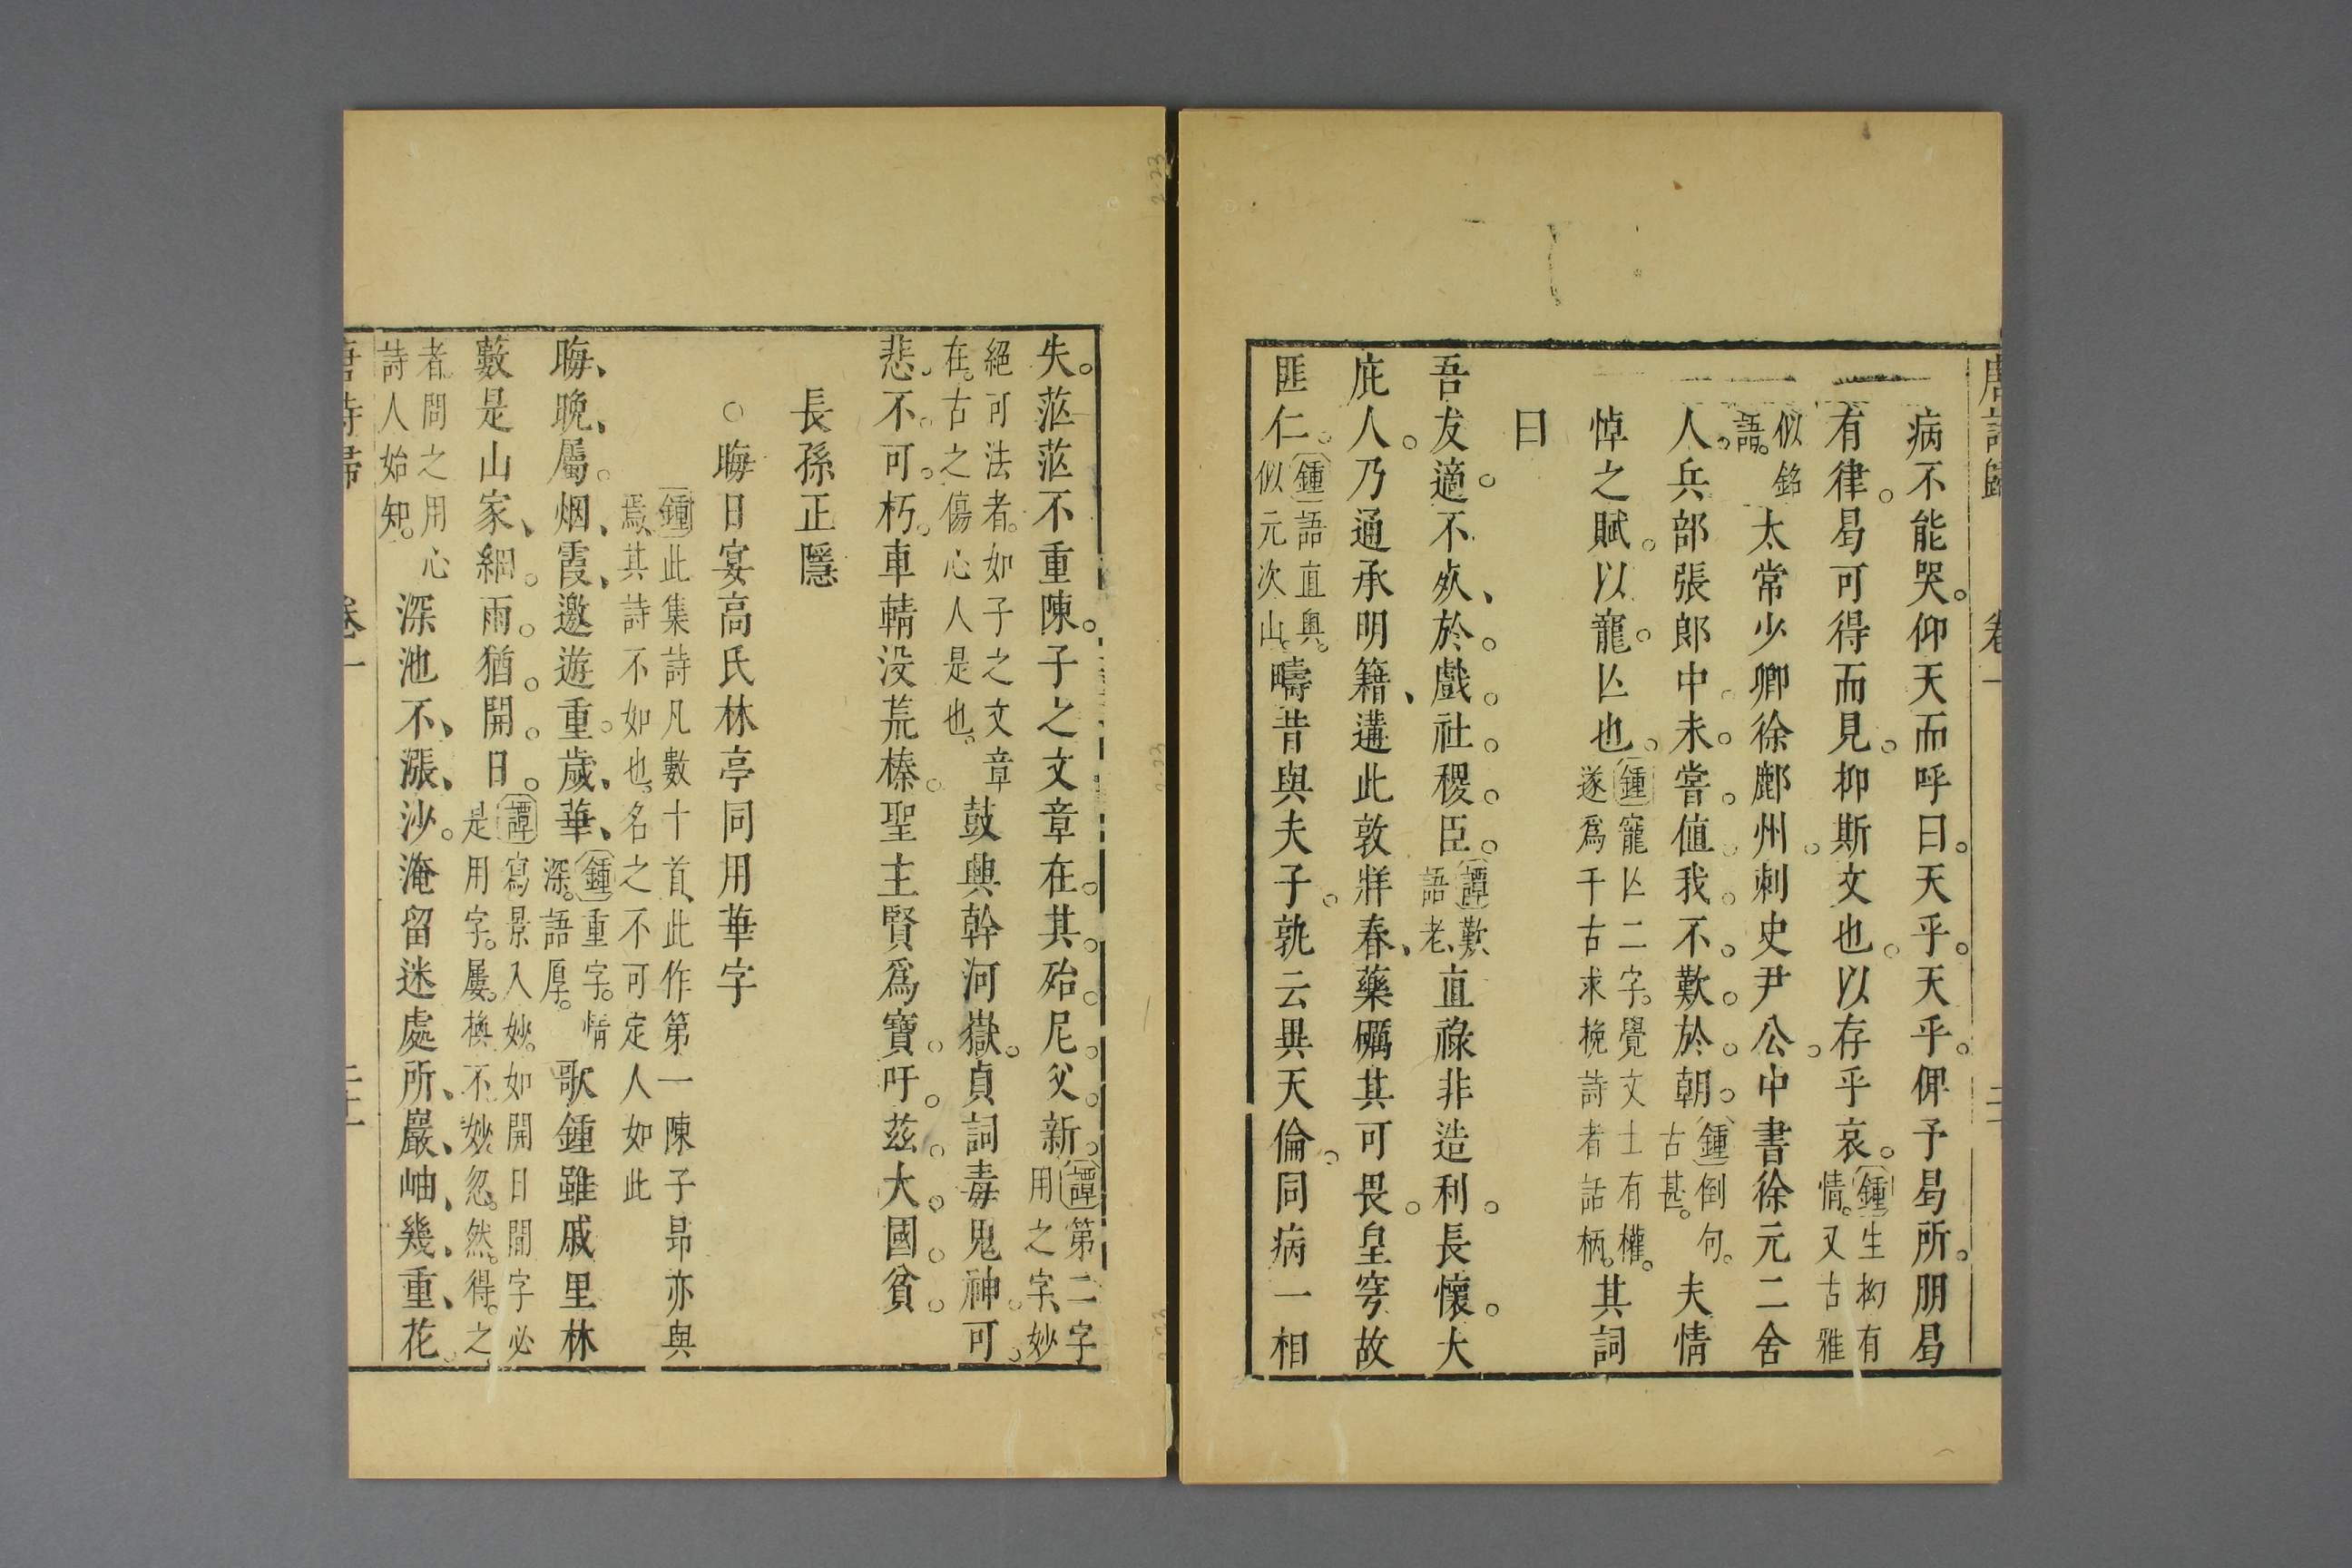 唐詩歸 卷一
病不能哭。仰天而呼曰。天乎。天乎。俾予曷所。朋曷
有律。曷可得而見。抑斯文也。以存乎哀。鍾生拗有
情。又古雅
似銘
語。太常少卿徐鄜州。刺史尹公。中書徐元二舍
人。兵部張郎中。未嘗値我。不歎於朝。鍾倒句。
古甚。夫情
悼之賦。以寵亾也。鍾寵亾二字。覺文士有權。
遂爲千古求挽詩者話柄。其詞
曰
吾友適。不死、於戲。社。稷。臣。譚歎
語老、直祿非造利。長懷。大
庇人。乃通承明籍、遘此敦牂春、藥礪其可畏。皇穹故
匪仁。鍾語直奧。
似元次山。疇昔與夫子。孰云異天倫。同病一相
失。茫茫不重陳。子之文章在。其殆尼父新。譚第二字
用之字、妙
絕可法者。如子之文章
在。古之傷心人是也。鼓興幹河嶽。貞詞毒鬼神。可。
悲。不可。朽。車輤没荒榛。聖主賢爲寶。吁。茲。大。國。貧。
長孫正隱
○晦日宴高氏林亭同用華字
鍾此集詩凡數十首、此作第一陳子昂亦與
焉、其詩不如也、名之不可定人如此
晦、晚、屬。烟、霞、邀遊重。歲、華、鍾重字。情
深。語厚。歌鍾雖戚里林
藪是山家、網。雨。猶。開。日。譚寫景入妙。如開日間字必
是用字。屢。換不妙忽。然。得。之
者、問之用心
詩人始知。深池不、漲、沙。淹留迷處所、巖、岫、幾、重、花。
唐詩歸 卷一